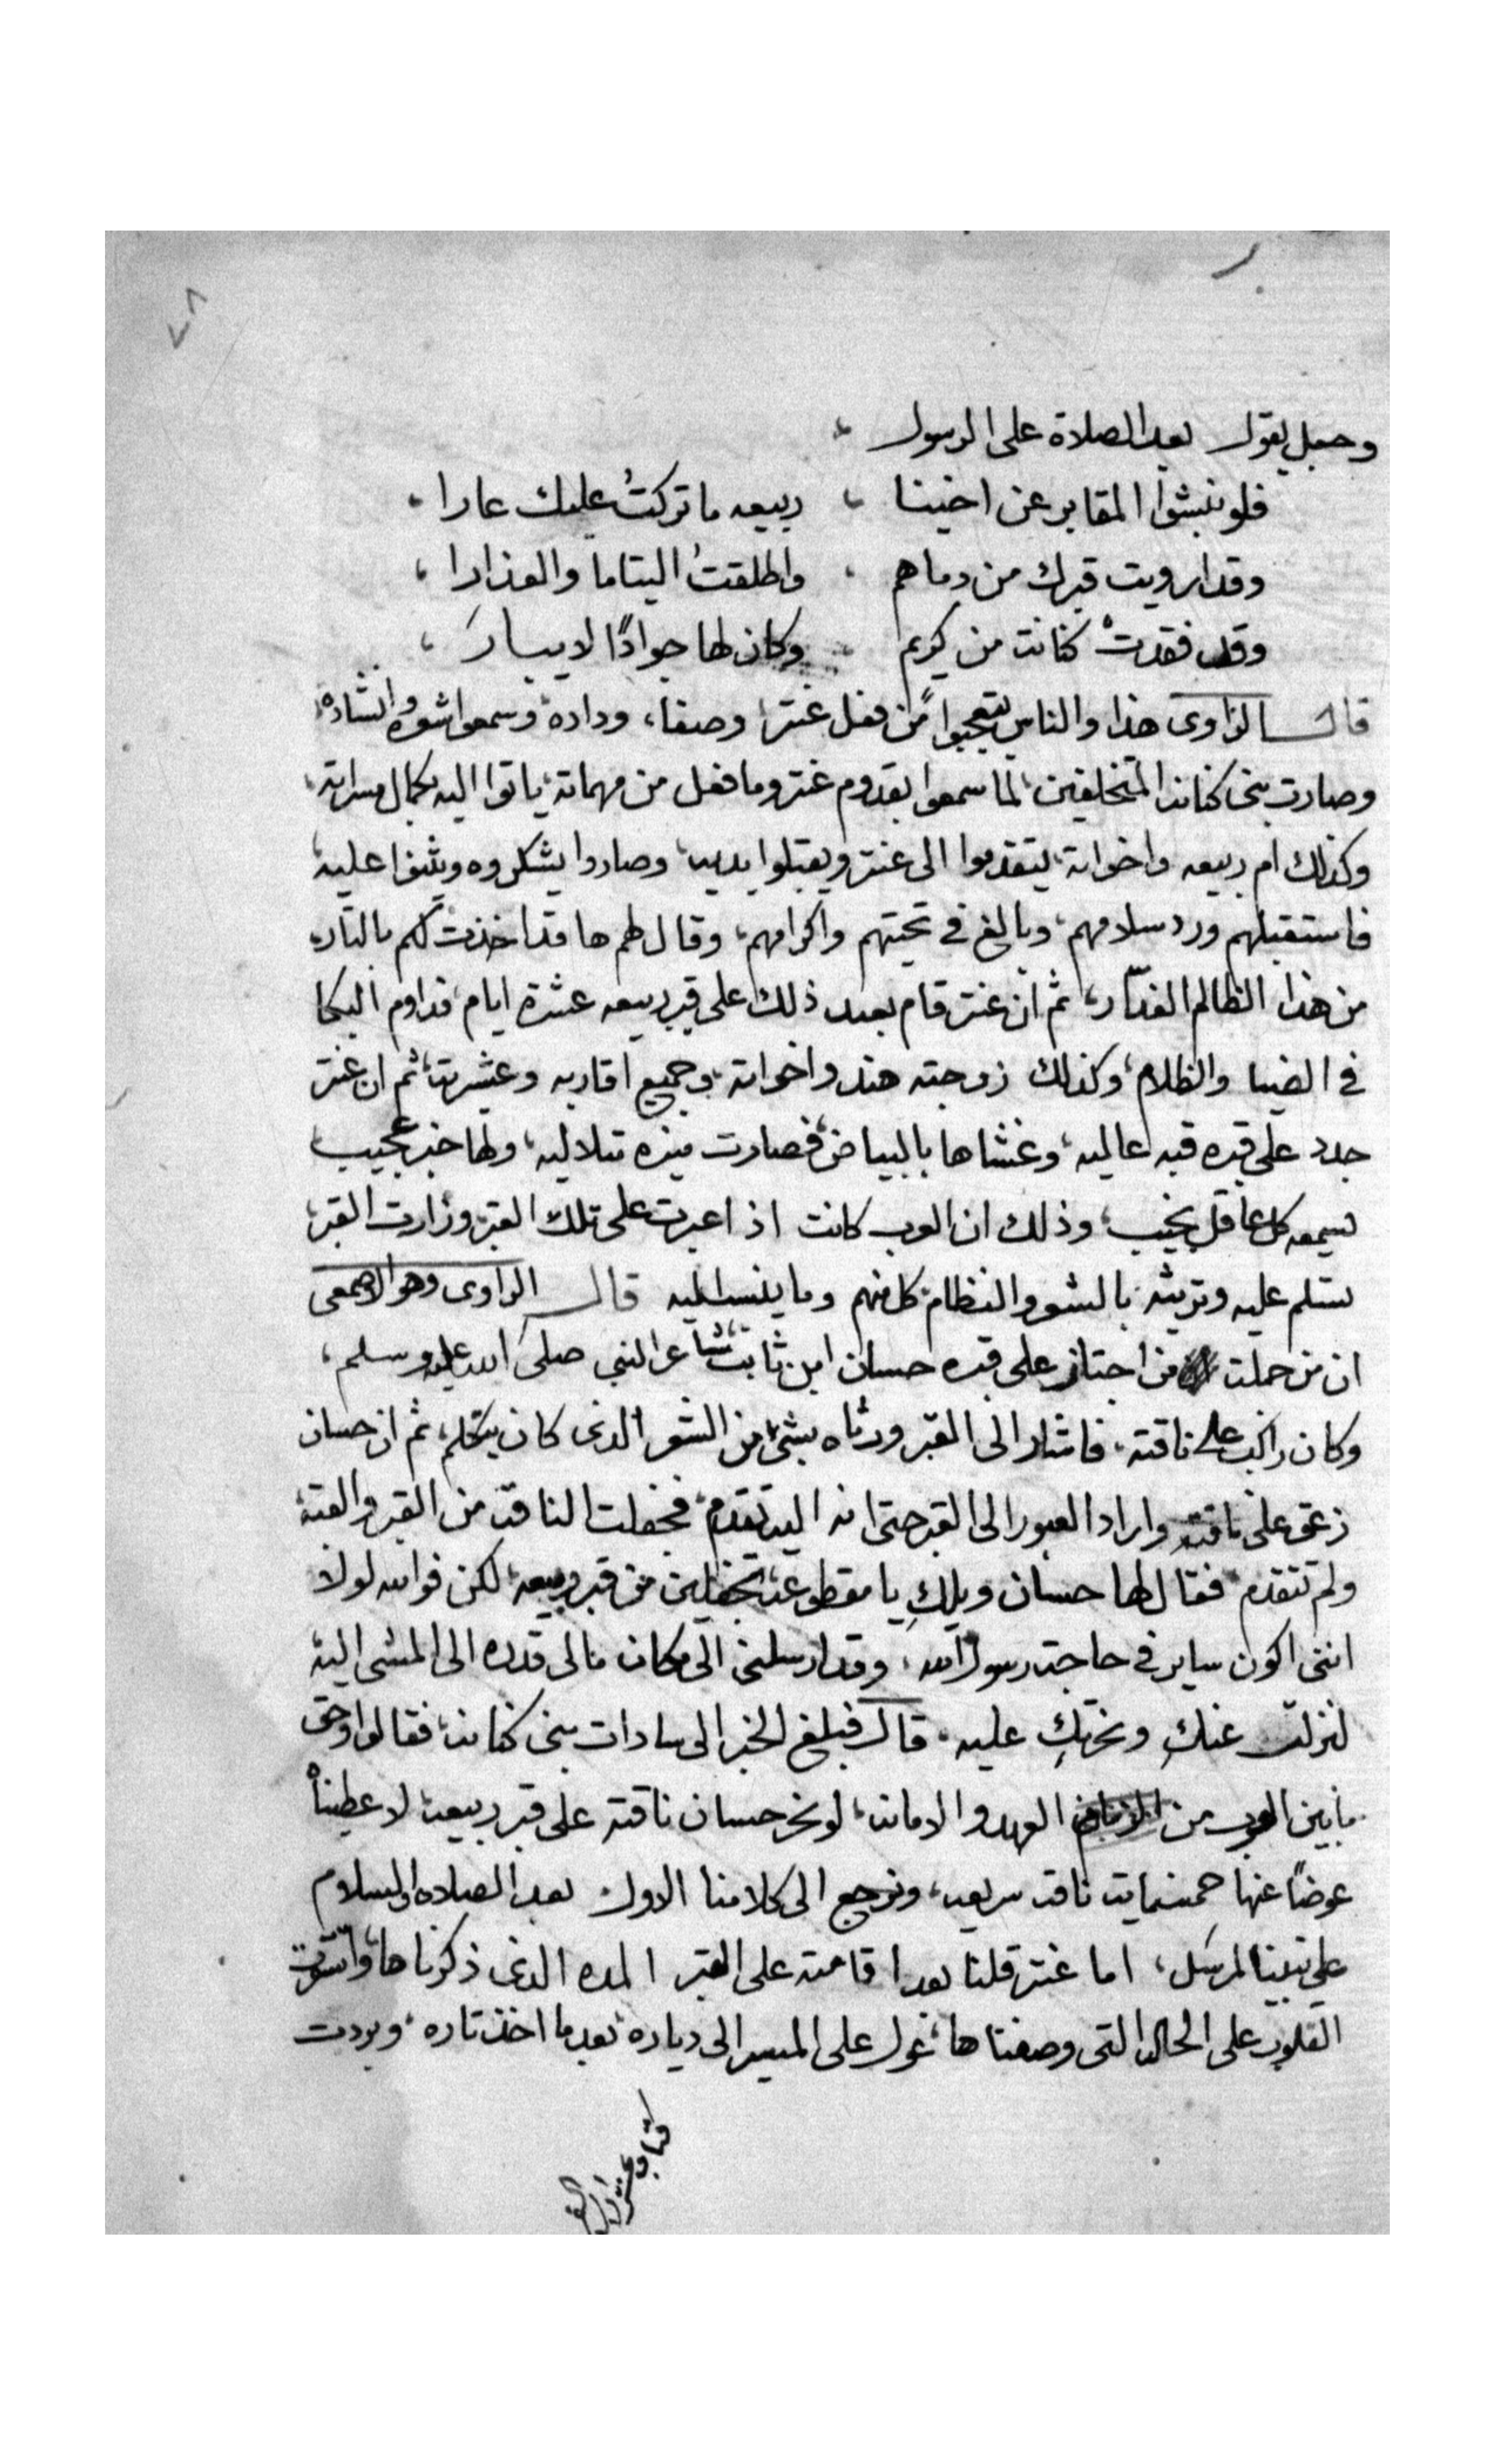 ٧٨
وجعل يقول بعد الصلاة على الرسول
فلو نبشوا المقابر عن اخينا ، ربيعه ما تركتُ عليك عارا ،
وقد ارويت قبرك من دماهم ، واطلقتُ اليتاما والعذارا ،
وقد فقدتْ كنانة من كريم ، وكان لها جوادًا لا يبارَ ،
قال الراوى هذا والناس يتعجبوا من فعل عنتر، وصفاء، وداده وسمعوا شعره وانشاده،
وصارت بنى كنانة المتخلفين، لما سمعوا بقدوم عنتر وما فعل من مهماته، ياتوا اليه بكمال مسراته،
وكذلك ام ربيعه واخواته، يتقدموا الى عنتر ويقبلوا يديه، وصاروا يشكروه ويثنوا عليه،
فاستقبلهم ورد سلامهم، وبالغ فى تحيتهم واكرامهم، وقال لهم ها قد اخذت لكم بالتار،
من هذا الظالم الغدّار، ثم ان عنتر قام بعد ذلك على قبر ربيعه عشرة ايام، قداوم البكا
فى الضيا والظلام، وكذلك زوجته هند واخواته، وجميع اقاربه وعشيرته، ثم ان عنتر
جدد على قبره قبه عاليه، وغشاها بالبياض، فصارت منيره تتلاليه، ولها خبر عجيب
يسمعه كل عاقل نجيب، وذلك ان العرب كانت اذا عبرت على تلك القبه، وزارت القبر،
تسلم عليه وترثيه بالشعر والنظام، كل منهم وما ينسب اليه قال الراوى وهو الاصمعى
ان من جملت من اجتاز على قبره حسان ابن ثابت شاعر النبى صلى الله عليه وسلم،
وكان راكب على ناقته، فاشار الى القبر ورثاه بشىء من الشعر الذى كان يتكلم، ثم ان حسان
زعق على ناقته واراد العبور الى القبر حتى انه اليه تقدم، فجفلت الناقه من القبر والقبة،
ولم تتقدم، فقال لها حسان ويلكِ يا مقطوعة، تجفلين من قبر ربيعه، لكن فوالله لولا
اننى اكون ساير فى حاجت رسول الله، وقد ارسلنى الى مكان مالى قدره الى المشى اليه
لنزلت عنكِ ونحرتكِ عليه، قال فبلغ الخبر الى سادات بنى كنانه، فقالوا وحق
ما بين العرب من العهد والامانه، لو نحر حسان ناقته على قبر ربيعه، لاعطيناه
عوضًا عنها خمسماية ناقه سريعه، ونرجع الى كلامنا الاول بعد الصلاه والسلام
على نبينا المرسل، اما عنتر قلنا بعد اقامته على القبر المده الذى ذكرناها،
القلوب على الحاله التى وصفناها، عول على المسير الى دياره، بعد ما اخذ تاره، وبردت